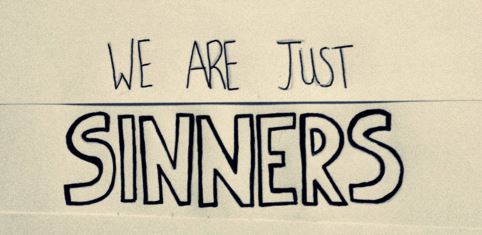 WE ARE JUST
SINNERS